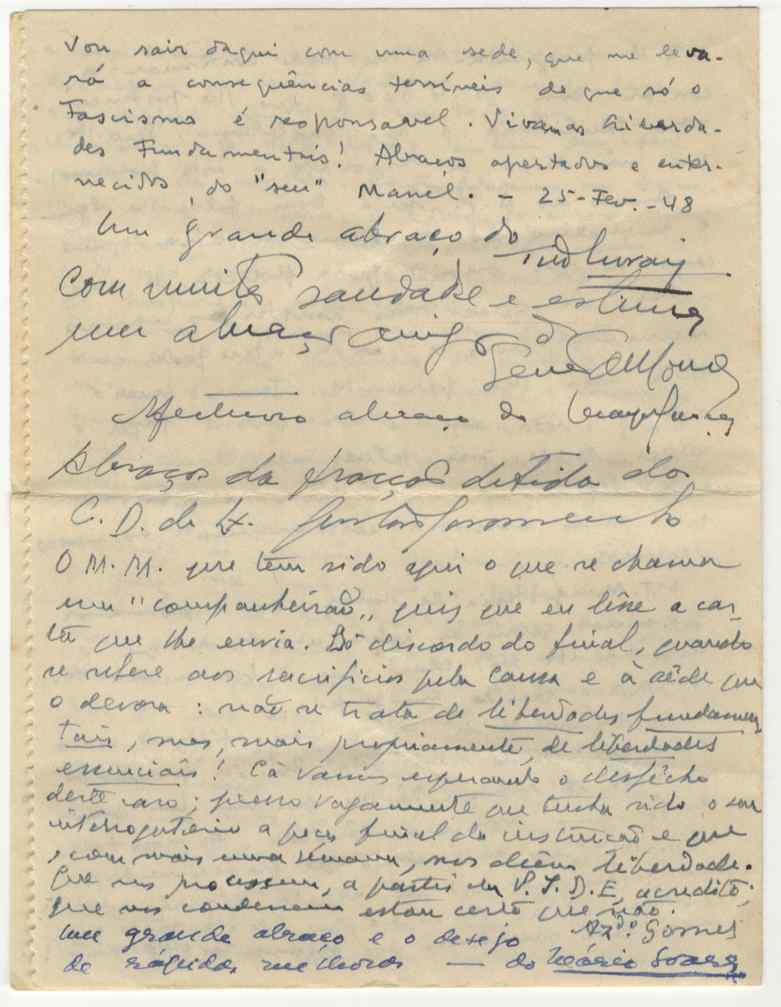 Vou sair daqui com uma sede, que me leva-
rá a consequências terríveis de que só o
Fascismo é responsavel. Vivam as Liberda-
des Fundamentais! Abraços apertados e enter-
necidos, do "seu" Manél. – 25-Fev.-48
Um grande abraço do
Com muita saudade e estima
um abraço amigo do
Afectuoso abraço do
Abraços da fracção detida do
C. D. de Lx. Gustavo Soromenho
O M. M. que tem sido aqui o que se chama
um "companheirão", quis que eu lêsse a car-
ta que lhe envia. Só discordo do final, quando
se refere aos sacrifícios pela Causa e à sêde que
o devora: não se trata de liberdades fundamen
tais, mas, mais propriamente, de liberdades
essenciais! Cá vamos esperando o desfêcho
deste caso; penso vagamente que tenha sido o seu
interrogatório a peça final da instrução e que
, com mais uma semana, nos dêem liberdade.
Que nos processem, a partir da P.I.D.E, acredito;
que nos condenem estou certo que não.
Azdo. Gomes
Um grande abraço e o desejo
de rápidas melhoras — do Mário Soares